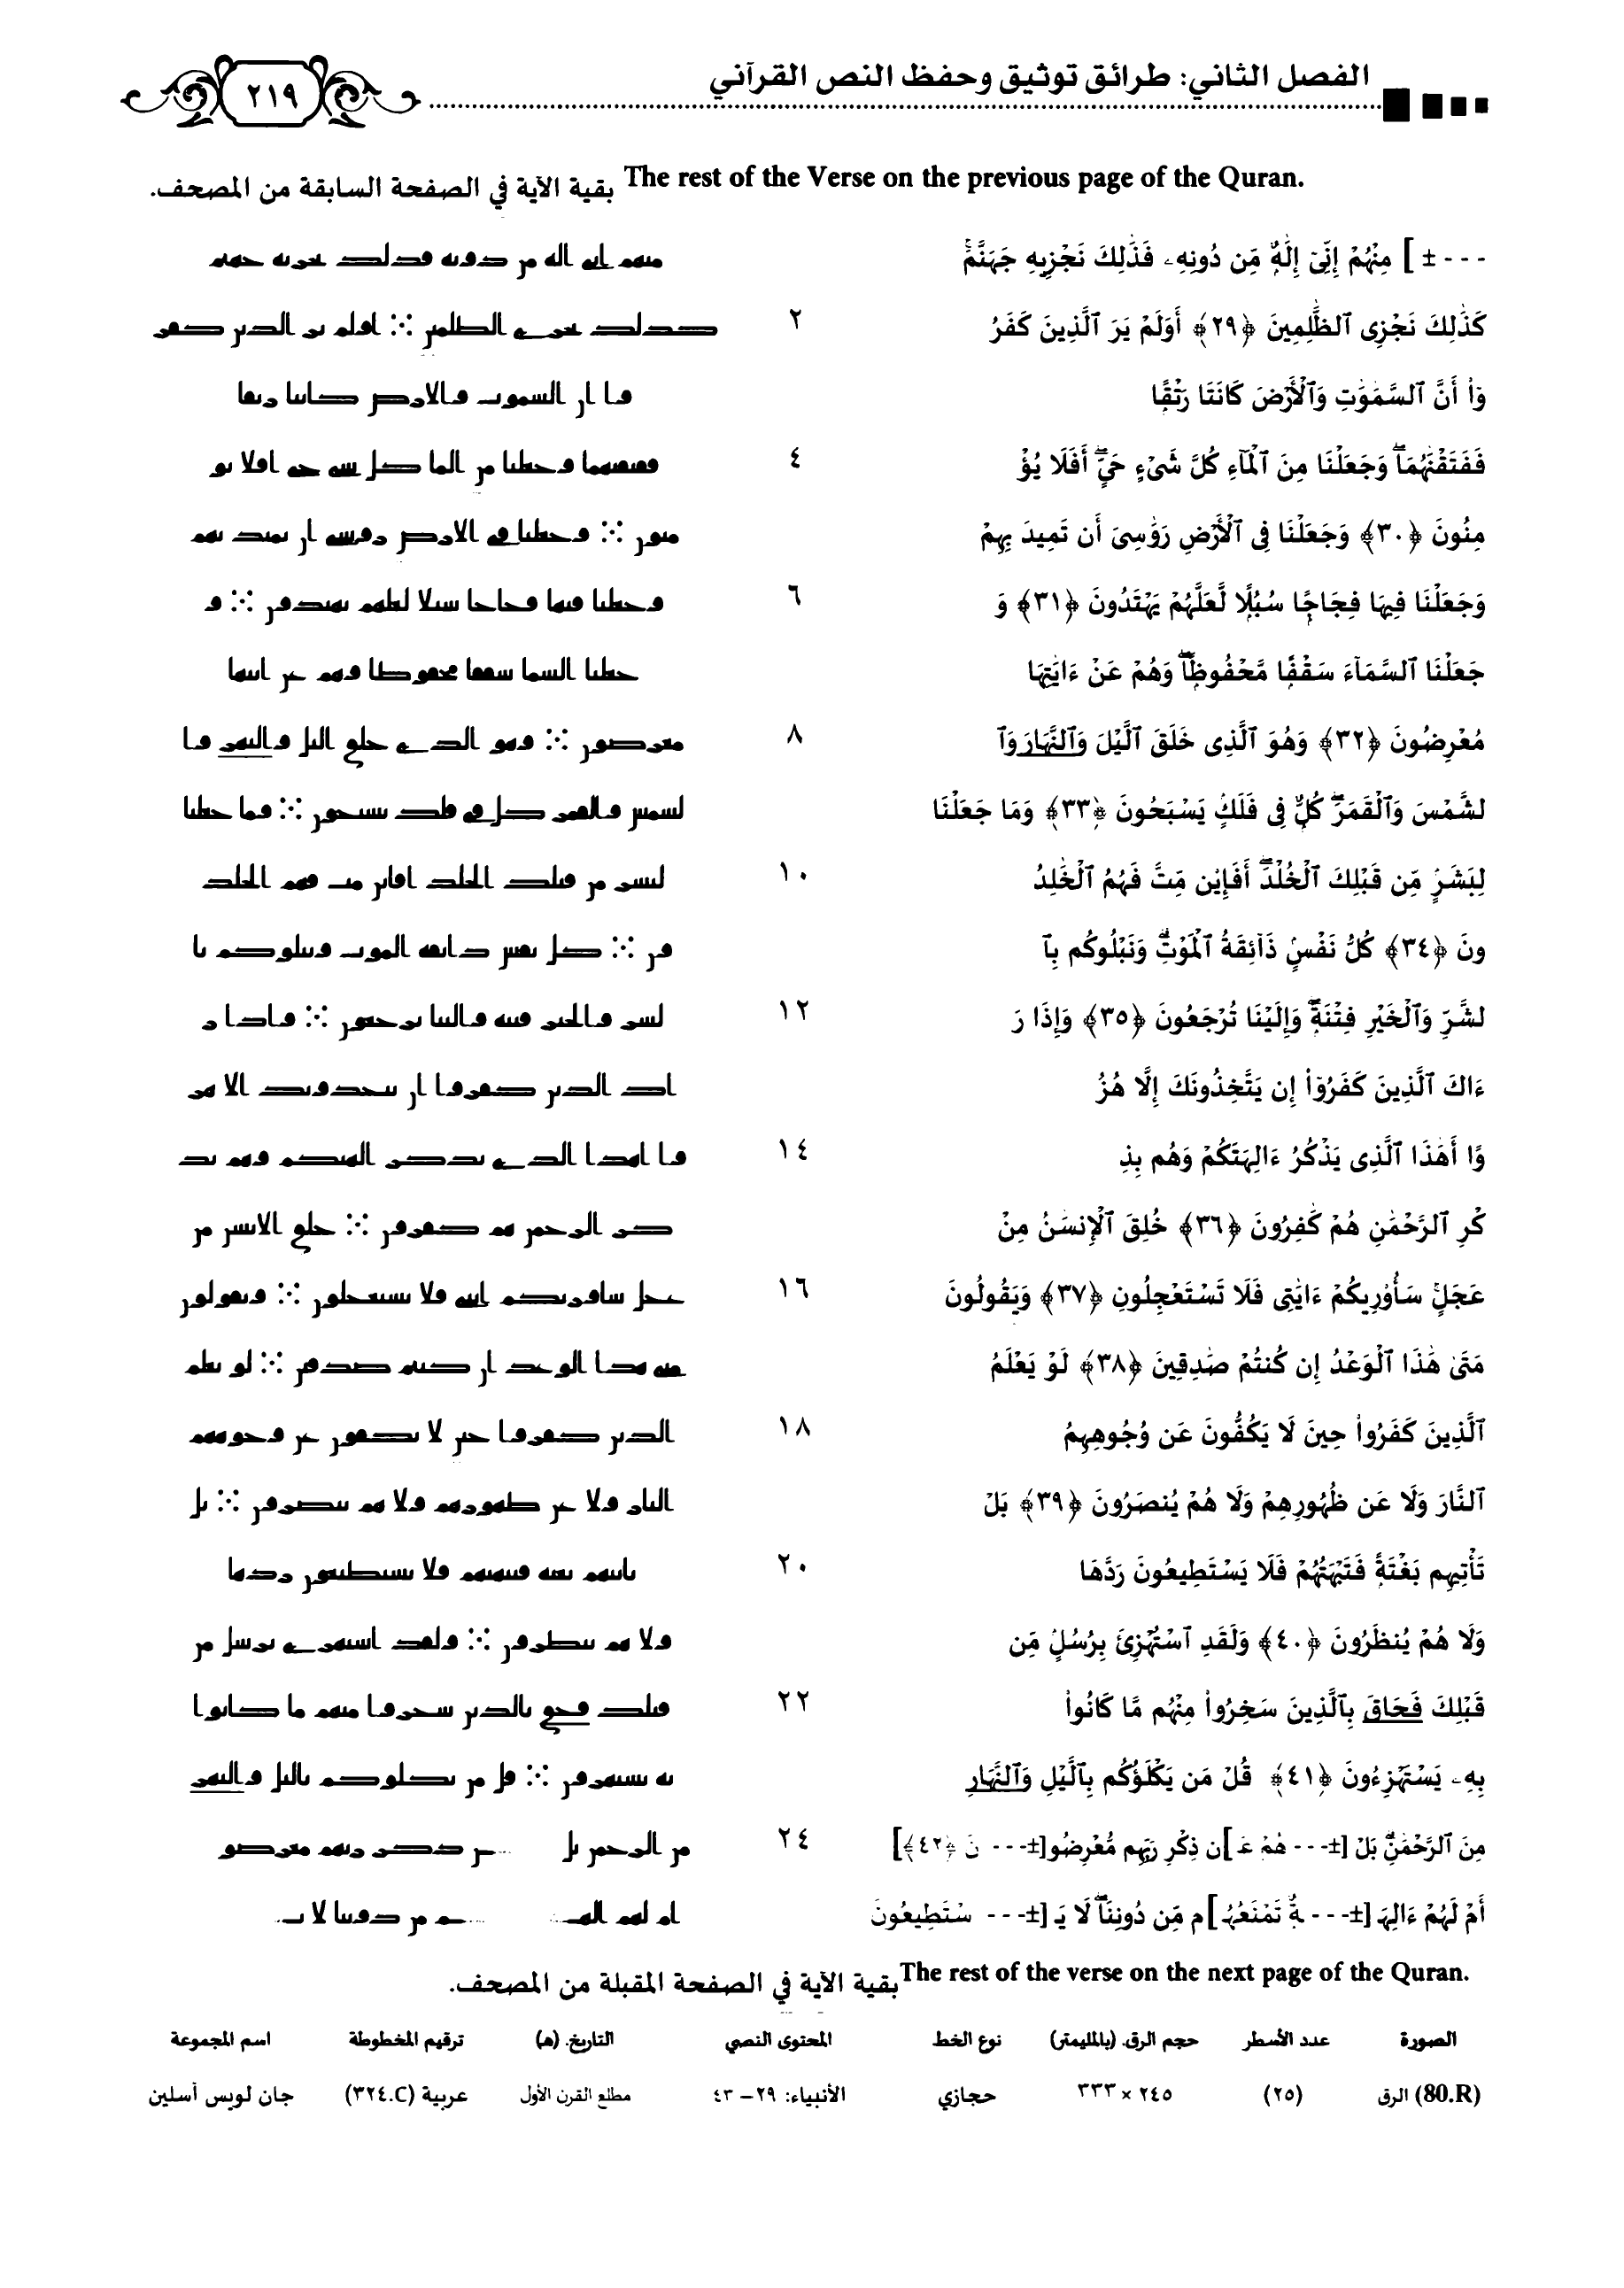 الفصل الثاني: طرائق توثيق وحفظ النص القرآني ٢١٩
The rest of the Verse on the previous page of the Quran. بقية الآية في الصفحة السابقة من المصحف.
- - - ± ] مِنْهُمْ إِنِّىٓ إِلَٰهٌ مِّن دُونِهِۦ فَذَٰلِكَ نَجْزِيهِ جَهَنَّمَۚ مٮهم اٮى اله مں دوٮه ڡدلك ٮحرٮه حهٮم
كَذَٰلِكَ نَجْزِى ٱلظَّٰلِمِينَ ﴿٢٩﴾ أَوَلَمْ يَرَ ٱلَّذِينَ كَفَرُ ٢ كدلك ٮحرى الطلمٮں ⁘ اولم ٮر الدٮں كڡر
وٓا۟ أَنَّ ٱلسَّمَٰوَٰتِ وَٱلْأَرْضَ كَانَتَا رَتْقًا وا اں السموٮ والارص كاٮٮا رٮٯا
فَفَتَقْنَٰهُمَاۖ وَجَعَلْنَا مِنَ ٱلْمَآءِ كُلَّ شَىْءٍ حَىٍّۖ أَفَلَا يُؤْ ٤ ڡڡٮٯٮهما وحعلٮا مں الما كل سى حى اڡلا ٮو
مِنُونَ ﴿٣٠﴾ وَجَعَلْنَا فِى ٱلْأَرْضِ رَوَٰسِىَ أَن تَمِيدَ بِهِمْ مٮوں ⁘ وحعلٮا ڡى الارص روسى اں ٮمٮد ٮهم
وَجَعَلْنَا فِيهَا فِجَاجًا سُبُلًا لَّعَلَّهُمْ يَهْتَدُونَ ﴿٣١﴾ وَ ٦ وحعلٮا ڡٮها ڡحاحا سٮلا لعلهم ٮهٮدوں ⁘ و
جَعَلْنَا ٱلسَّمَآءَ سَقْفًا مَّحْفُوظًاۖ وَهُمْ عَنْ ءَايَٰتِهَا حعلٮا السما سٯڡا محڡوطا وهم عں اٮٮها
مُعْرِضُونَ ﴿٣٢﴾ وَهُوَ ٱلَّذِى خَلَقَ ٱلَّيْلَ وَٱلنَّهَارَ وَٱ ٨ معرصوں ⁘ وهو الدى حلٯ الٮل والٮهر وا
لشَّمْسَ وَٱلْقَمَرَۖ كُلٌّ فِى فَلَكٍ يَسْبَحُونَ ﴿٣٣﴾ وَمَا جَعَلْنَا لسمس والٯمر كل ڡى ڡلك ٮسٮحوں ⁘ وما حعلٮا
لِبَشَرٍ مِّن قَبْلِكَ ٱلْخُلْدَۖ أَفَإِي۟ن مِّتَّ فَهُمُ ٱلْخَٰلِدُ ١٠ لٮسر مں ٯٮلك الحلد اڡاٮں مٮ ڡهم الحلد
ونَ ﴿٣٤﴾ كُلُّ نَفْسٍ ذَآئِقَةُ ٱلْمَوْتِۗ وَنَبْلُوكُم بِٱ وں ⁘ كل ٮڡس داٮٯه الموٮ وٮٮلوكم ٮا
لشَّرِّ وَٱلْخَيْرِ فِتْنَةًۖ وَإِلَيْنَا تُرْجَعُونَ ﴿٣٥﴾ وَإِذَا رَ ١٢ لسر والحٮر ڡٮٮه والٮٮا ٮرحعوں ⁘ وادا ر
ءَاكَ ٱلَّذِينَ كَفَرُوٓا۟ إِن يَتَّخِذُونَكَ إِلَّا هُزُ اك الدٮں كڡروا اں ٮٮحدوٮك الا هر
وًا أَهَٰذَا ٱلَّذِى يَذْكُرُ ءَالِهَتَكُمْ وَهُم بِذِ ١٤ وا اهدا الدى ٮدكر الهٮكم وهم ٮد
كْرِ ٱلرَّحْمَٰنِ هُمْ كَٰفِرُونَ ﴿٣٦﴾ خُلِقَ ٱلْإِنسَٰنُ مِنْ كر الرحمں هم كڡروں ⁘ حلٯ الاٮسں مں
عَجَلٍۚ سَأُو۟رِيكُمْ ءَايَٰتِى فَلَا تَسْتَعْجِلُونِ ﴿٣٧﴾ وَيَقُولُونَ ١٦ عحل ساورٮكم اٮٮى ڡلا ٮسٮعحلوں ⁘ وٮٯولوں
مَتَىٰ هَٰذَا ٱلْوَعْدُ إِن كُنتُمْ صَٰدِقِينَ ﴿٣٨﴾ لَوْ يَعْلَمُ مٮى هدا الوعد اں كٮٮم صدٯٮں ⁘ لو ٮعلم
ٱلَّذِينَ كَفَرُوا۟ حِينَ لَا يَكُفُّونَ عَن وُجُوهِهِمُ ١٨ الدٮں كڡروا حٮں لا ٮكڡوں عں وحوههم
ٱلنَّارَ وَلَا عَن ظُهُورِهِمْ وَلَا هُمْ يُنصَرُونَ ﴿٣٩﴾ بَلْ الٮار ولا عں طهورهم ولا هم ٮٮصروں ⁘ ٮل
تَأْتِيهِم بَغْتَةً فَتَبْهَتُهُمْ فَلَا يَسْتَطِيعُونَ رَدَّهَا ٢٠ ٮاٮٮهم ٮعٮه ڡٮٮهٮهم ڡلا ٮسٮطٮعوں ردها
وَلَا هُمْ يُنظَرُونَ ﴿٤٠﴾ وَلَقَدِ ٱسْتُهْزِئَ بِرُسُلٍ مِّن ولا هم ٮٮطروں ⁘ ولٯد اسٮهرى ٮرسل مں
قَبْلِكَ فَحَاقَ بِٱلَّذِينَ سَخِرُوا۟ مِنْهُم مَّا كَانُوا۟ ٢٢ ٯٮلك ڡحٯ ٮالدٮں سحروا مٮهم ما كاٮوا
بِهِۦ يَسْتَهْزِءُونَ ﴿٤١﴾ قُلْ مَن يَكْلَؤُكُم بِٱلَّيْلِ وَٱلنَّهَارِ ٮه ٮسٮهروں ⁘ ٯل مں ٮكلوكم ٮالٮل والٮهر
مِنَ ٱلرَّحْمَٰنِۗ بَلْ [±- - - هُمْ عَـ ]ن ذِكْرِ رَبِّهِم مُّعْرِضُو[±- - - نَ ﴿٤٢﴾] ٢٤ مں الرحمں ٮل ـں دكر رٮهم معرصو
أَمْ لَهُمْ ءَالِهَـ [±- - - ـةٌ تَمْنَعُهُـ ]م مِّن دُونِنَاۚ لَا يَـ [±- - - سْتَطِيعُونَ ام لهم الهـ ـم مں دوٮٮا لا ٮـ
The rest of the verse on the next page of the Quran. بقية الآية في الصفحة المقبلة من المصحف.
الصورة عدد الأسطر حجم الرق. (بالمليمتر) نوع الخط المحتوى النصي التاريخ. (هـ) ترقيم المخطوطة اسم المجموعة
(80.R) الرق (٢٥) ٢٤٥ × ٣٣٣ حجازي الأنبياء: ٢٩– ٤٣ مطلع القرن الأول عربية (C.٣٢٤) جان لويس أسلين